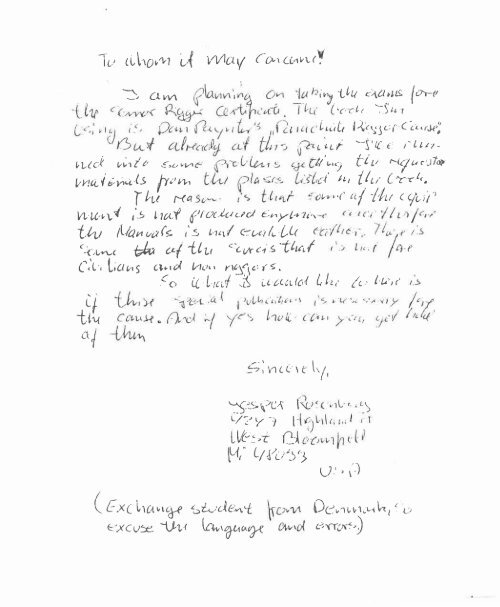 To whom it may concarne!
I am planning on taking the exams fore
the Senior Rigger Certificate. The book I'm
using is Dan Poynter's „Parachute Rigger Cause".
But already at this point I've
into some problems getting the
materials from the places listed in the book.
The reason is that some of the equip
ment is not produced anymore
the Manuals is not either. There is
some of the that is not fore
Civilians and non riggers.
So what I would like to is
if these special publication is necessary fore
the cause. And if yes how can you get
of them
Sincerely,
Jesper Rosenberg
Highland
West Bloomfield
Mi 48033
USA
(Exchange student from Denmark, so
excuse the language and errors.)